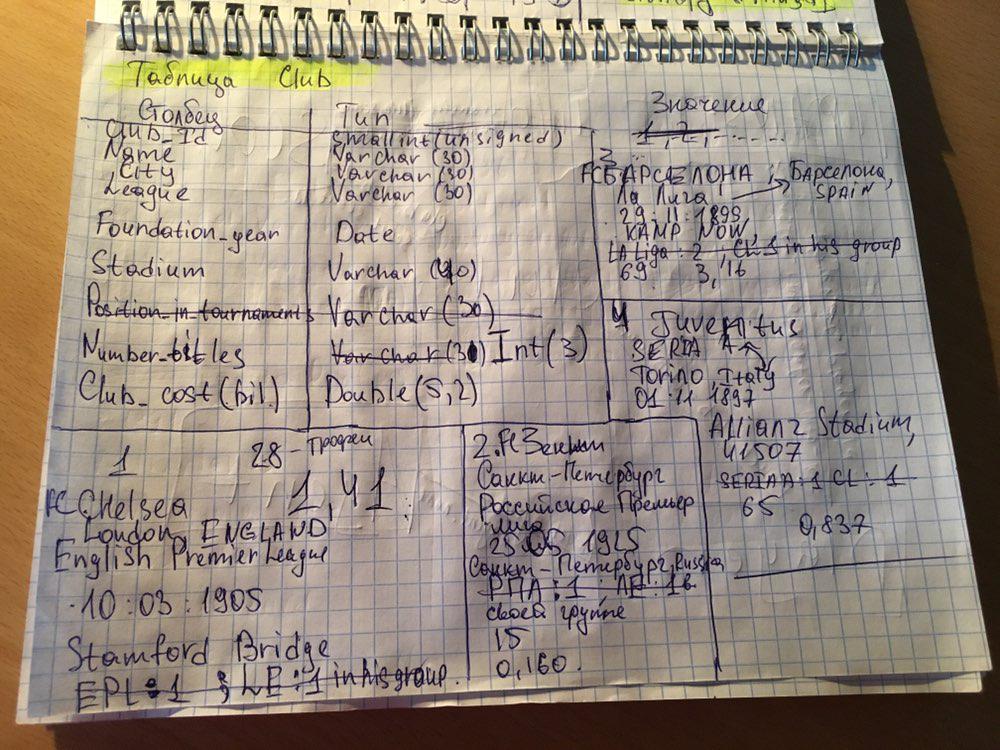 Таблица Club
Столбец Тип Значение
Club_Id Smallint(unsigned) 1, 2, ......
Name Varchar (30)
City Varchar (30)
League Varchar (30)
Foundation_year Date
Stadium Varchar (40)
Position_in_tournaments Varchar (30)
Number_titles Varchar (30) Int(3)
Club_cost(bil.) Double(5,2)
3
FC БАРСЕЛОНА ; Барселона,
Ла Лига SPAIN
29:11:1899
KAMP NOW,
LA Liga : 2 , CL:1 in his group
69 3,16
4 Juventus
SERIA A
Torino, Italy
01.11 1897
Allianz Stadium,
41507
SERIAA:1 CL:1
65
0,837
1 28 - Трофеи
FC CHelsea 1,41
London, ENGLAND
English Premier League
10:03:1905
Stamford Bridge
EPL:1 ; LE:1 in his group.
2. FC Зенит
Санкт-Петербург
Российское Премьер
лига
25 05 1925
Санкт-Петербург, Russia
РПЛ:1 ; ЛЕ:1 в
своей группе
15
0,160.